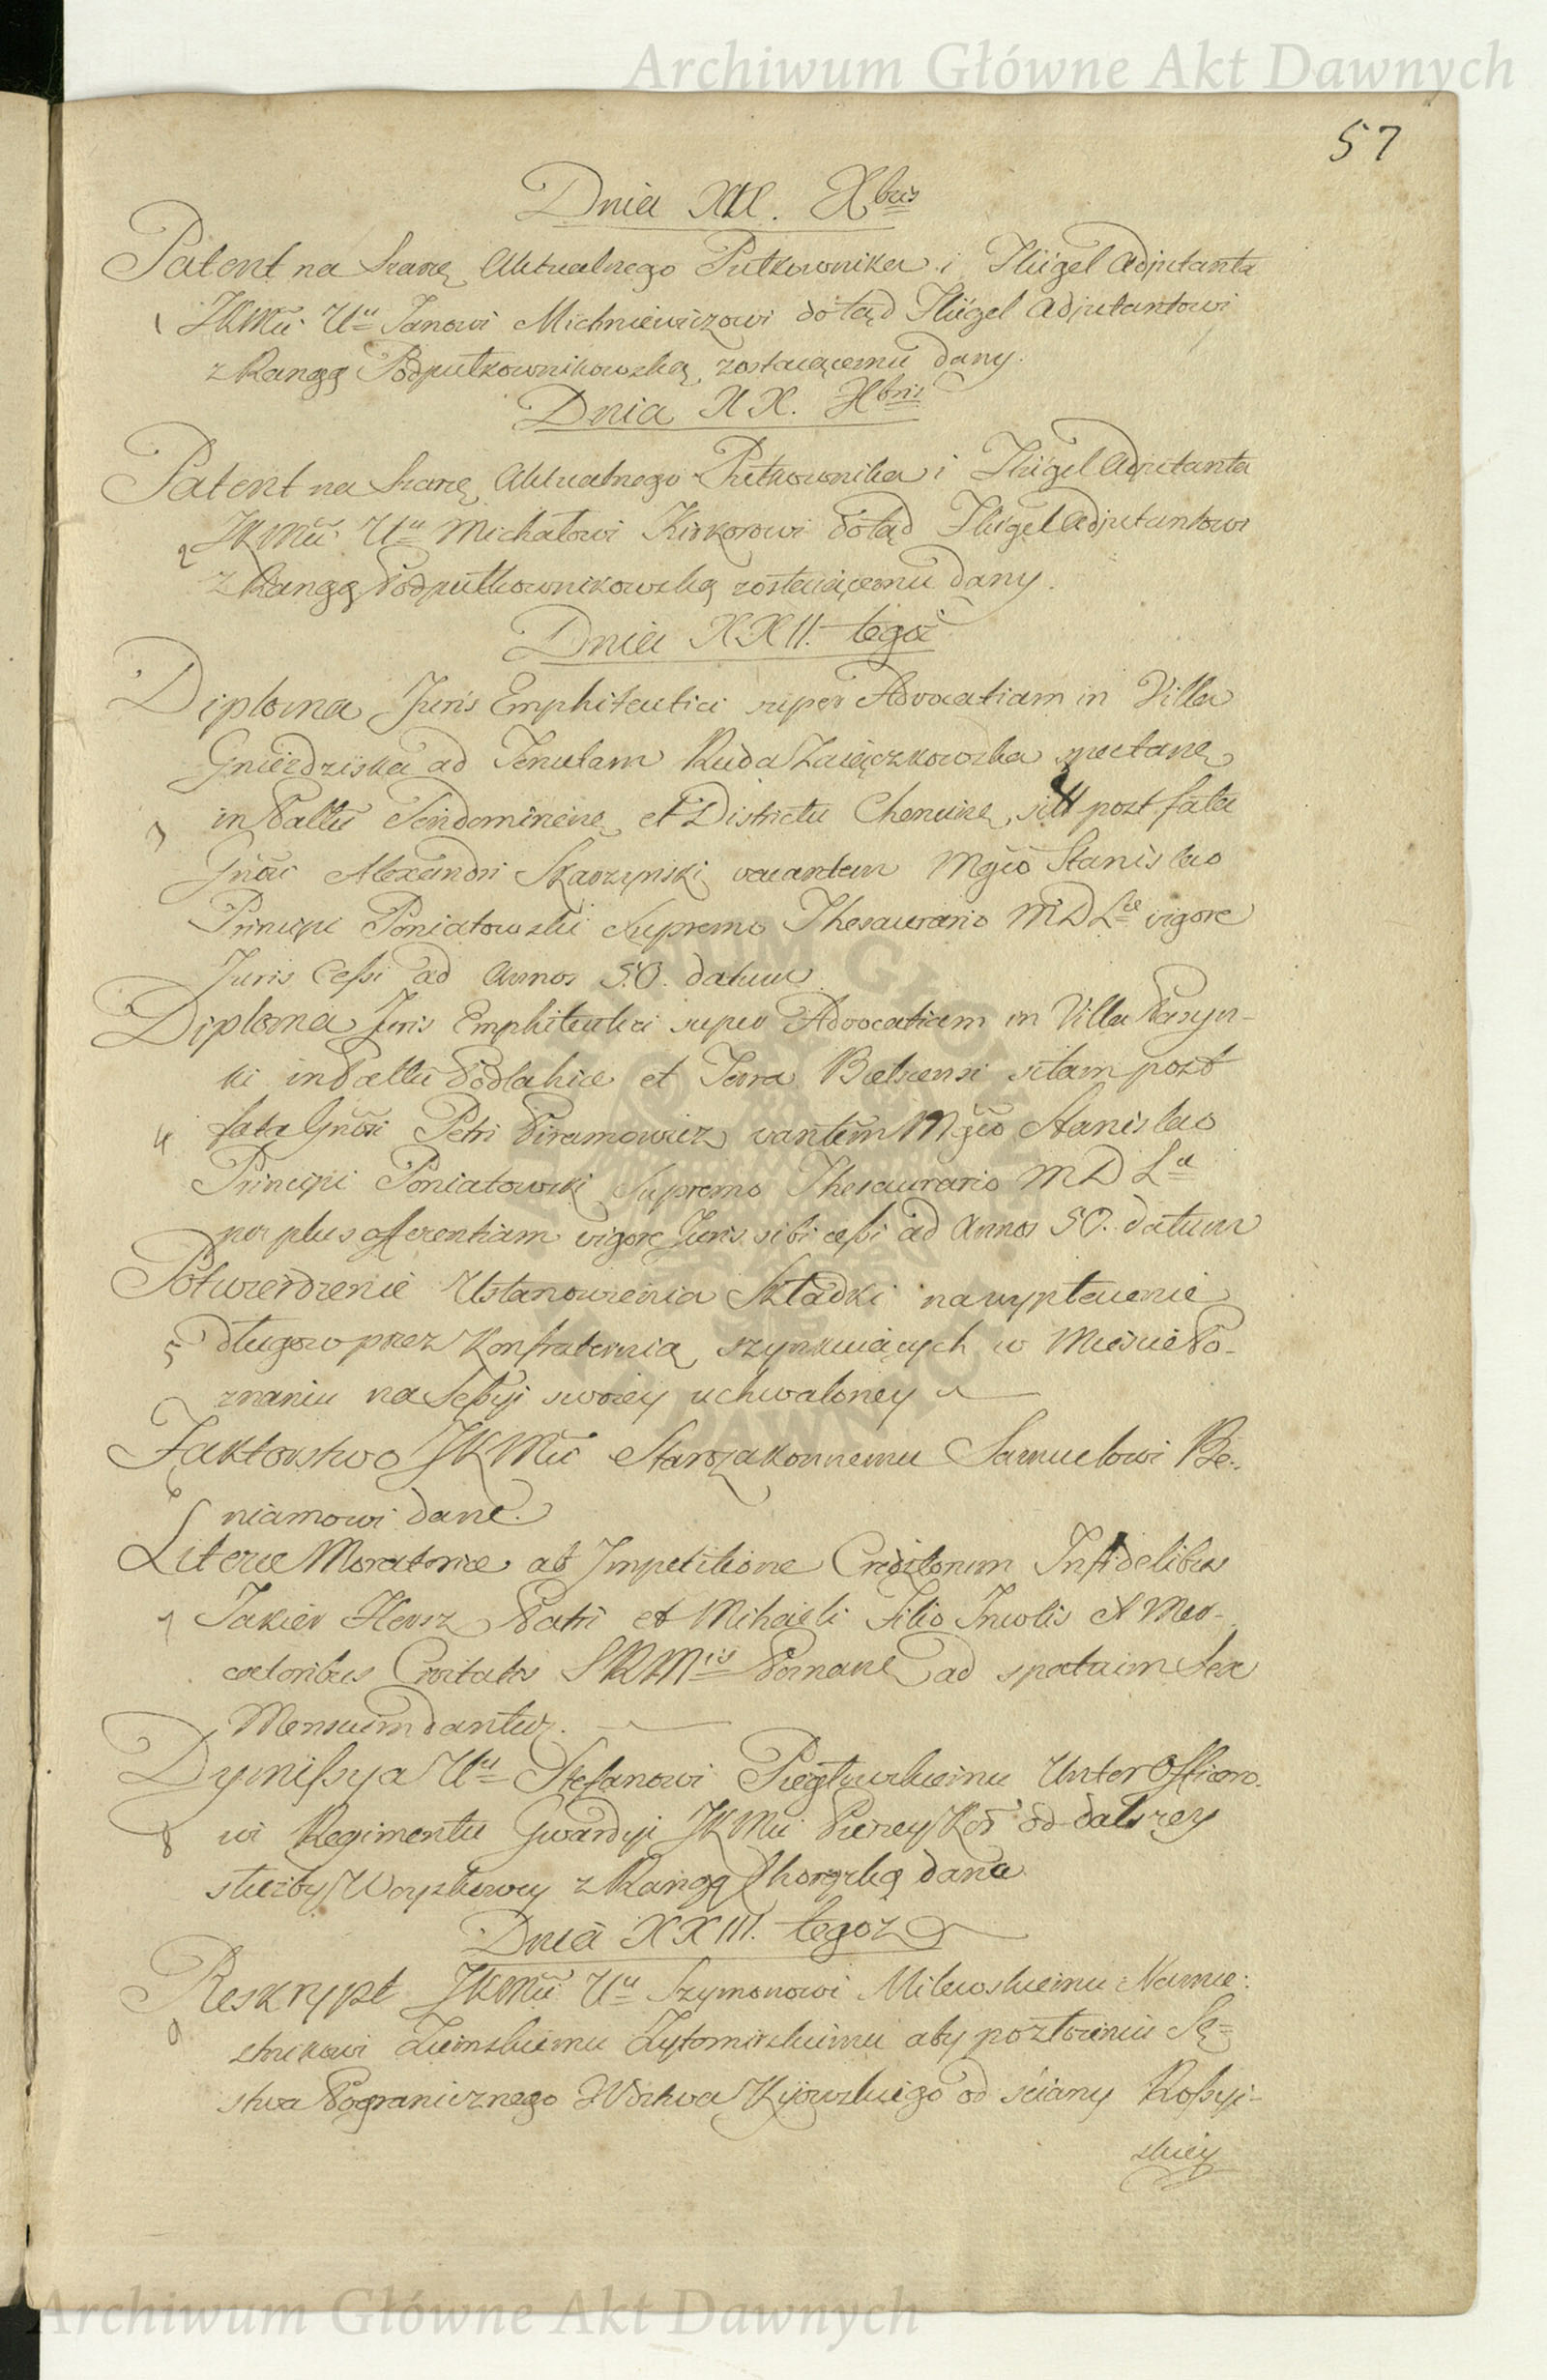 Archiwum Główne Akt Dawnych
57
Dnia XIX. Xbris
Patent na Szarzę Aktualnego Pułkownika i Flügel Adjutanta
1 JKMci Uu Janowi Michniewiczowi dotąd Flügel Adjutantowi
z Rangą Podpułkownikowską zostaiącemu dany.
Dnia XX. Xbris
Patent na Szarzę Aktualnego Pułkownika i Flügel Adjutanta
2 JKMci Uu Michałowi Kirkorowi dotąd Flügel Adjutantowi
z Rangą Podpułkownikowską zostaiącemu dany.
Dnia XXII. tegoż
Diploma Juris Emphiteutici super Advocatiam in Villa
Gnieździska ad Tenutam Ruda Zaiączkowska
3 in Palltu Sendomirien. et Districtu Chencinen. post fata
Gnosi Alexandri Skarzynski vacantem Mgco Stanislao
Principi Poniatowski Supremo Thesaurario MDLae vigore
Juris Cessi ad Annos 50. datum
Diploma Juris Emphiteutici super Advocatiam in Villa Pasyn-
ki in Pallu Podlahiae et Terra Bielscensi sitam post
4 fata Gnosi Petri Piramowicz vantem Mgco Stanislao
Principi Poniatowski Supremo Thesaurario MD Lae
per plus offerentiam vigore Juris sibi cessi ad Annos 50. datum
Potwierdzenie Ustanowienia Składki na wypłacenie
5 Długow przez Konfraternią szynkuiących w Mieście Po-
znaniu na Sessyi swoiey uchwaloney
Faktorstwo JKMci Starozakonnemu Samuelowi Be-
6 niamowi dane.
Literae Moratoriae ab Impetitione Creditorum Infidelibus
7 Jakier Hersz Patri et Michaeli Filio Incolis et Mer-
catoribus Civitatis SRMtis Posnaniae ad spatium Sex
Mensium dantur.
Dymissya Uu Stefanowi Unter Officero-
8 wi Regimentu Gwardyi JKMci Pieszey Kor od dalszey
służby Woyskowey z Rangą Chorążką dana
Dnia XXIII. tegoż
Reskrypt JKMci Uu Szymonowi Milewskiemu Namie-
9 stnikowi Ziemskiemu Żytomirskiemu aby po złożeniu Sę-
stwa Pogranicznego Wdztwa Kijowskiego od ściany Rossyi-
skiey
Archiwum Główne Akt Dawnych